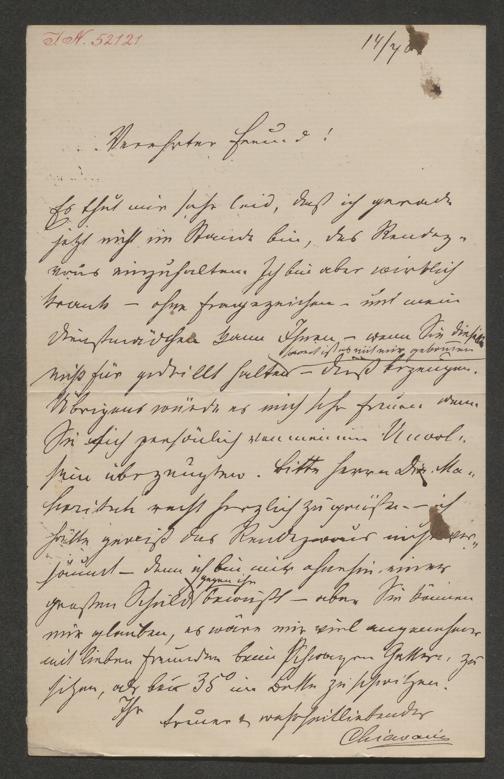 I. N. 52121
14/7
Verehrter Freund!
Es thut mir sehr leid, daß ich gerade
jetzt nicht im Stande bin, das Rendez-
vous einzuhalten. Ich bin aber wirklich
krank – ohne Fragezeichen – und mein
Dienstmädchen kann Ihnen – wenn Sie dieselbe
nicht für gedrillt halten – dieß bezeugen.
Übrigens würde es mich sehr freuen wenn
Sie sich persönlich von meinem Unwol-
sein überzeugten. Bitte Herrn Dr.
recht herzlich zu grüßen – ich
hätte gewiß das Rendezvous nicht ver-
säumt – denn ich bin mir ohnehin einer
gegen ihn
großen Schuld bewußt – aber Sie können
mir glauben, es wäre mir viel angenehmer
mit lieben Freunden beim Schwarzen zu
sitzen, als bei 35° im Bette zu schwitzen.
Ihr
treuer & wahrheitliebender
Chiavacci